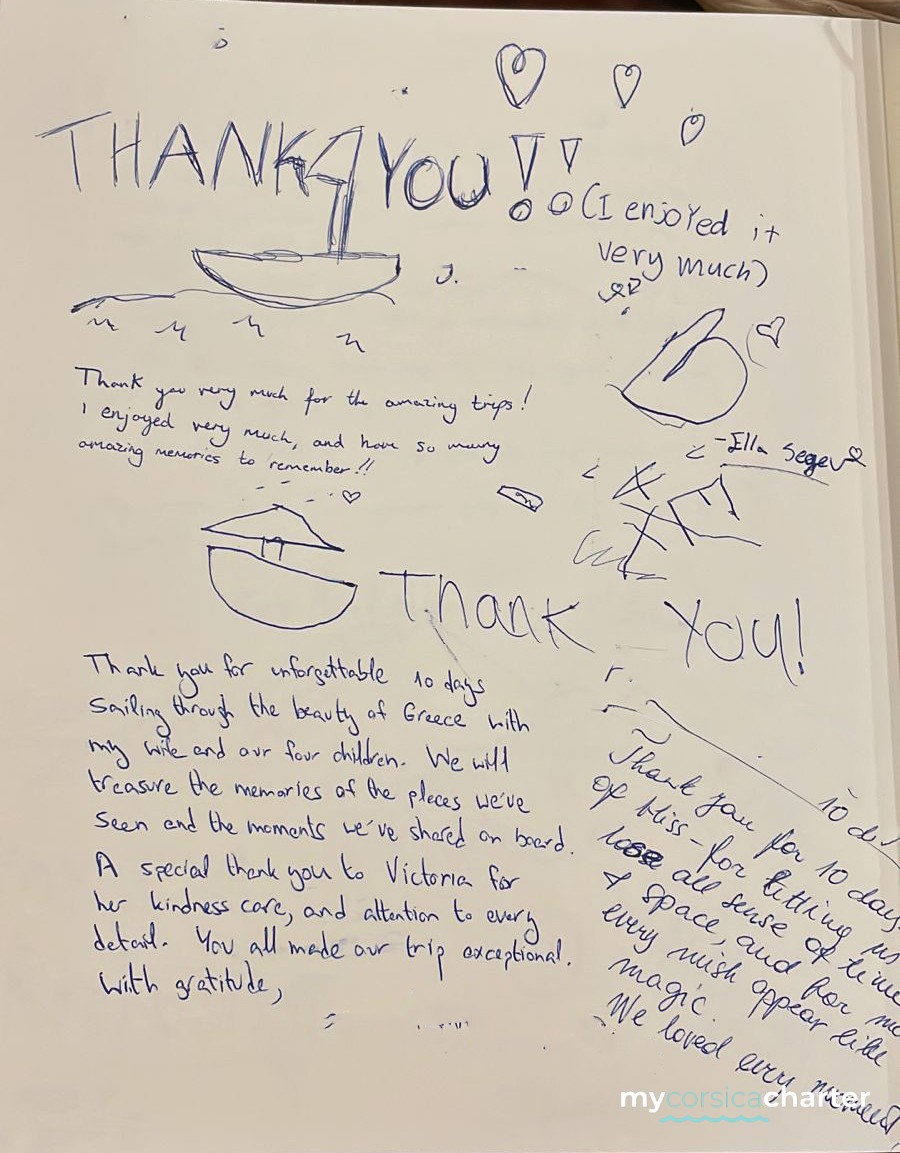 THANK YOU!!
(I enjoyed it
very much)
Thank you very much for the amazing trips!
I enjoyed very much, and have so many
amazing memories to remember!!
-Ella Segev
Thank You!
Thank you for unforgettable 10 days
Sailing through the beauty of Greece with
my wife and our four children. We will
treasure the memories of the places we've
seen and the moments we've shared on board.
A special thank you to Victoria for
her kindness care, and attention to every
detail. You all made our trip exceptional.
With gratitude,
10 d
Thank you for 10 days
of bliss - for letting us
lose all sense of time
& space, and for
every wish appear like
magic.
We loved every moment,
mycorsicacharter